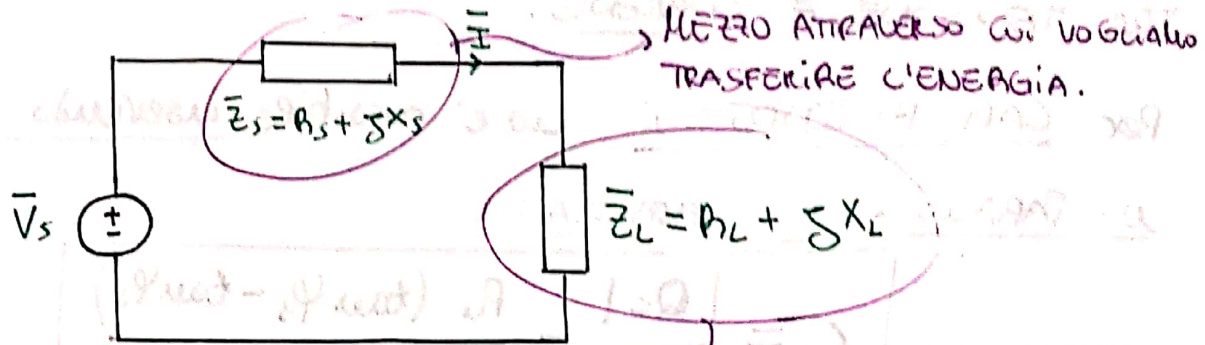 Ī
MEZZO ATTRAVERSO CUI VOGLIAMO
TRASFERIRE L'ENERGIA.
Z̄s = Rs + jXs
V̄s
+
-
Z̄L = RL + jXL